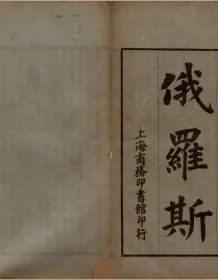 俄羅斯
上海商務印書館印行